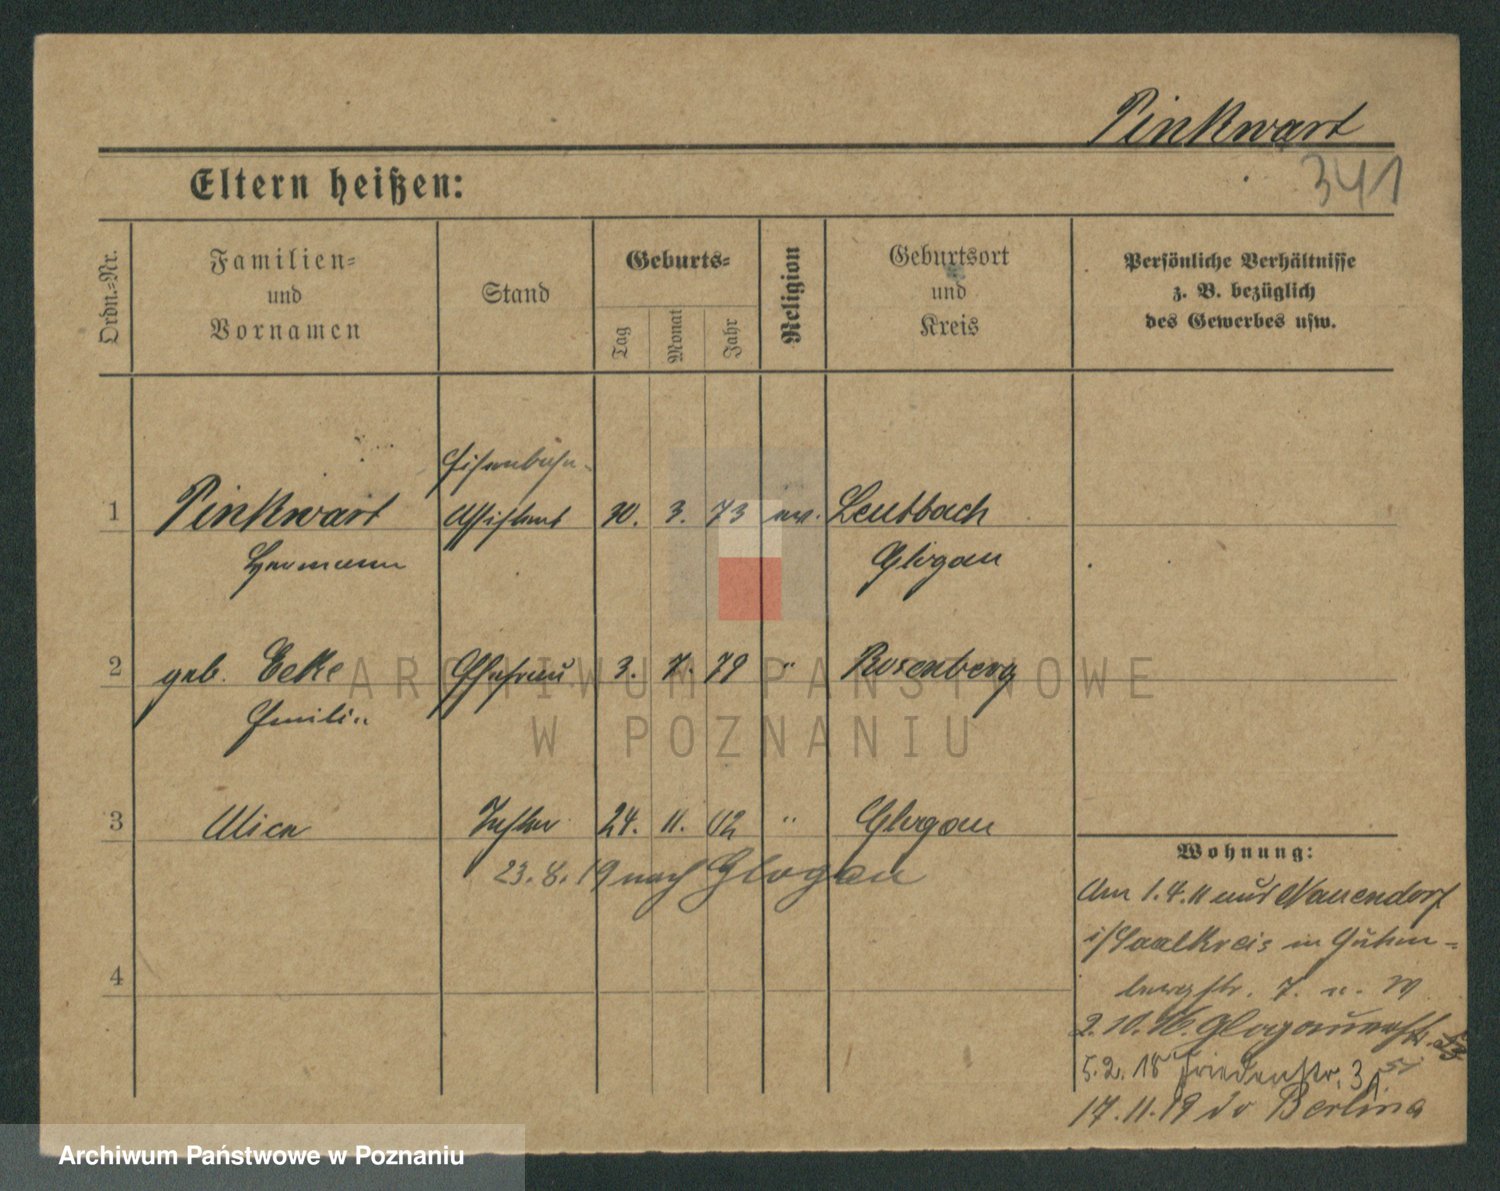 Pinkwart
341
Eltern heißen:
Ordn.=Nr.
Familien=
und
Vornamen
Stand
Geburts=
Tag
Monat
Jahr
Religion
Geburtsort
und
Kreis
Persönliche Verhältnisse
z. B. bezüglich
des Gewerbes usw.
Eisenbahn-
1 Pinkwart Assistent 30. 3. 73 ev. Leutbach
Hermann Glogau
2 geb. Ecke Ehefrau 3. 7. 79 " Rosenberg
Emilie
3 Alice Tochter 24. 11. 02 " Glogau
23. 8. 19 nach Glogau
4
Wohnung:
Am 1.4.11 aus Nauendorf
i/Saalkreis in
str. 7.
2. 10. 16. Glogauerstr.
5. 2. 18 Friedenstr. 3
17. 11. 19 do
ARCHIWUM PAŃSTWOWE
W POZNANIU
Archiwum Państwowe w Poznaniu